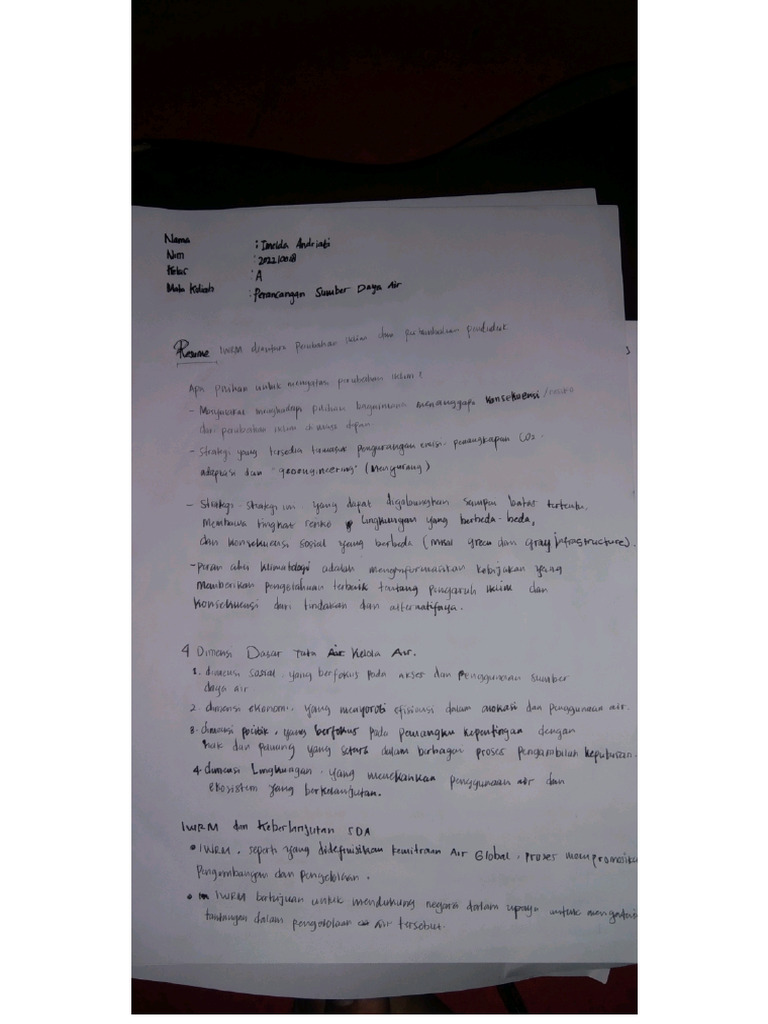 Nama : Imelda Andriati
Nim : 202210018
Kelas : A
Mata Kuliah : Perancangan Sumber Daya Air
Resume : IWRM diantara perubahan iklim dan pertumbuhan penduduk
Apa pilihan untuk mengatasi perubahan iklim ?
- Masyarakat menghadapi pilihan bagaimana menanggapi konsekuensi / resiko
dari perubahan iklim di masa depan.
- Strategi yang tersedia termasuk pengurangan emisi, penangkapan CO2.
adaptasi dan "geoengineering" (mengurang)
- Strategi - strategi ini yang dapat digabungkan sampai batas tertentu,
membawa tingkat resiko lingkungan yang berbeda - beda,
dan konsekuensi sosial yang berbeda (misal green dan gray infrastructure).
- peran ahli klimatologi adalah menginformasikan kebijakan yang
memberikan pengetahuan terbaik tentang pengaruh iklim dan
konsekuensi dari tindakan dan alternatifnya.
4 Dimensi Dasar Tata Kelola Air.
1. dimensi sosial, yang berfokus pada akses dan penggunaan sumber
daya air
2. dimensi ekonomi, yang menyoroti efisiensi dalam alokasi dan penggunaan air.
3. dimensi politik, yang berfokus pada pemangku kepentingan dengan
hak dan peluang yang setara dalam berbagai proses pengambilan keputusan.
4. dimensi Lingkungan, yang menekankan penggunaan air dan
ekosistem yang berkelanjutan.
IWRM dan Keberlanjutan SDA
• IWRM, seperti yang didefinisikan Kemitraan Air Global, proses mempromosika
Pengembangan dan pengelolaan.
• IWRM bertujuan untuk mendukung negara dalam upaya untuk mengatasi
tantangan dalam pengelolaan air tersebut.